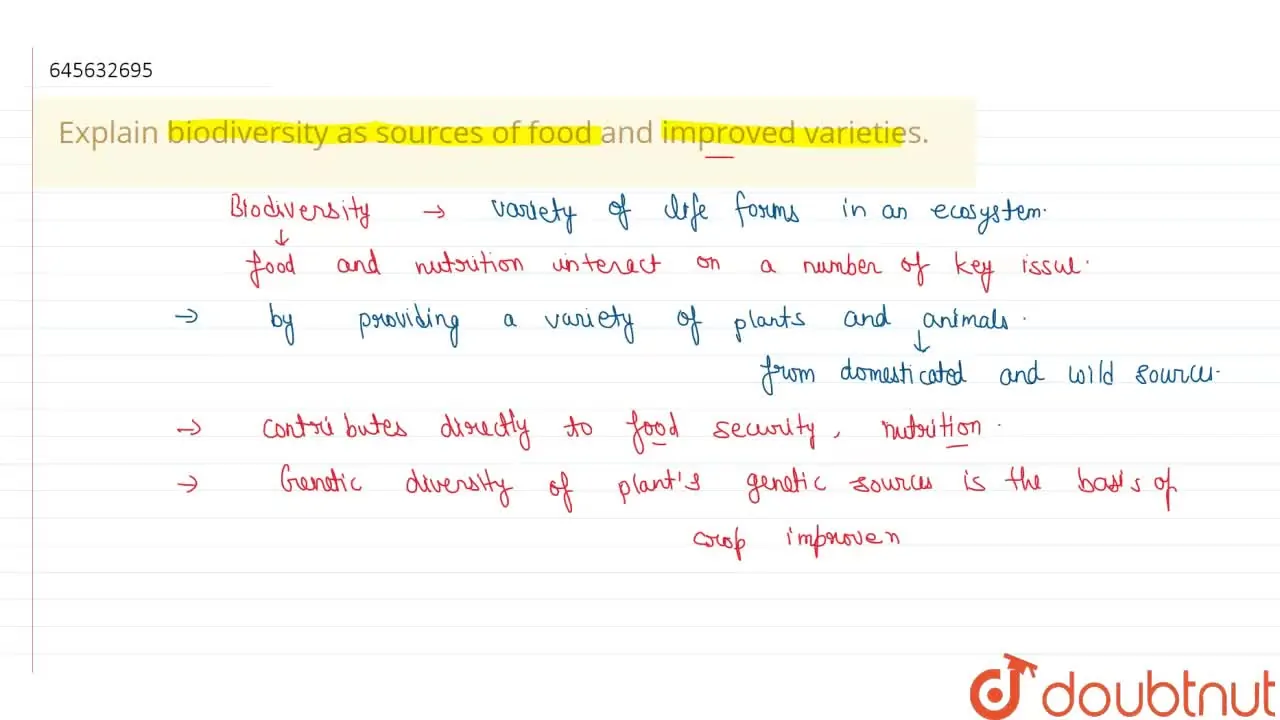 645632695
Explain biodiversity as sources of food and improved varieties.
Biodiversity → variety of life forms in an ecosystem.
↓
food and nutrition interact on a number of key issue.
→ by providing a variety of plants and animals.
↓
from domesticated and wild sources.
→ contributes directly to food security, nutrition.
→ Genetic diversity of plant's genetic sources is the basis of
crop improven
doubtnut